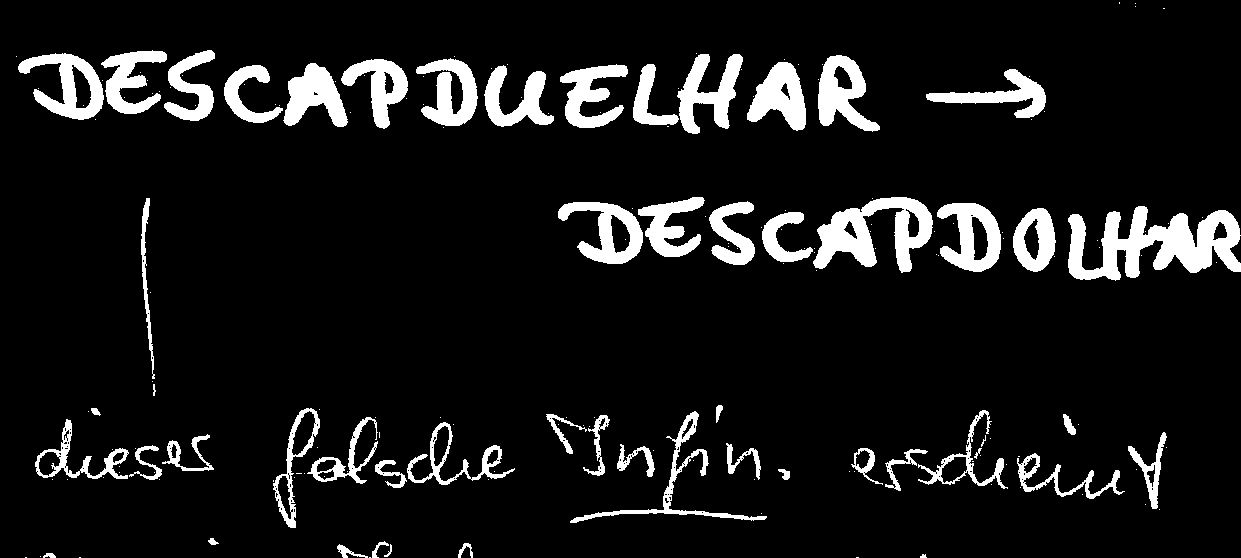 DESCAPDUELHAR →
DESCAPDOLHAR
dieser falsche Infin. erscheint